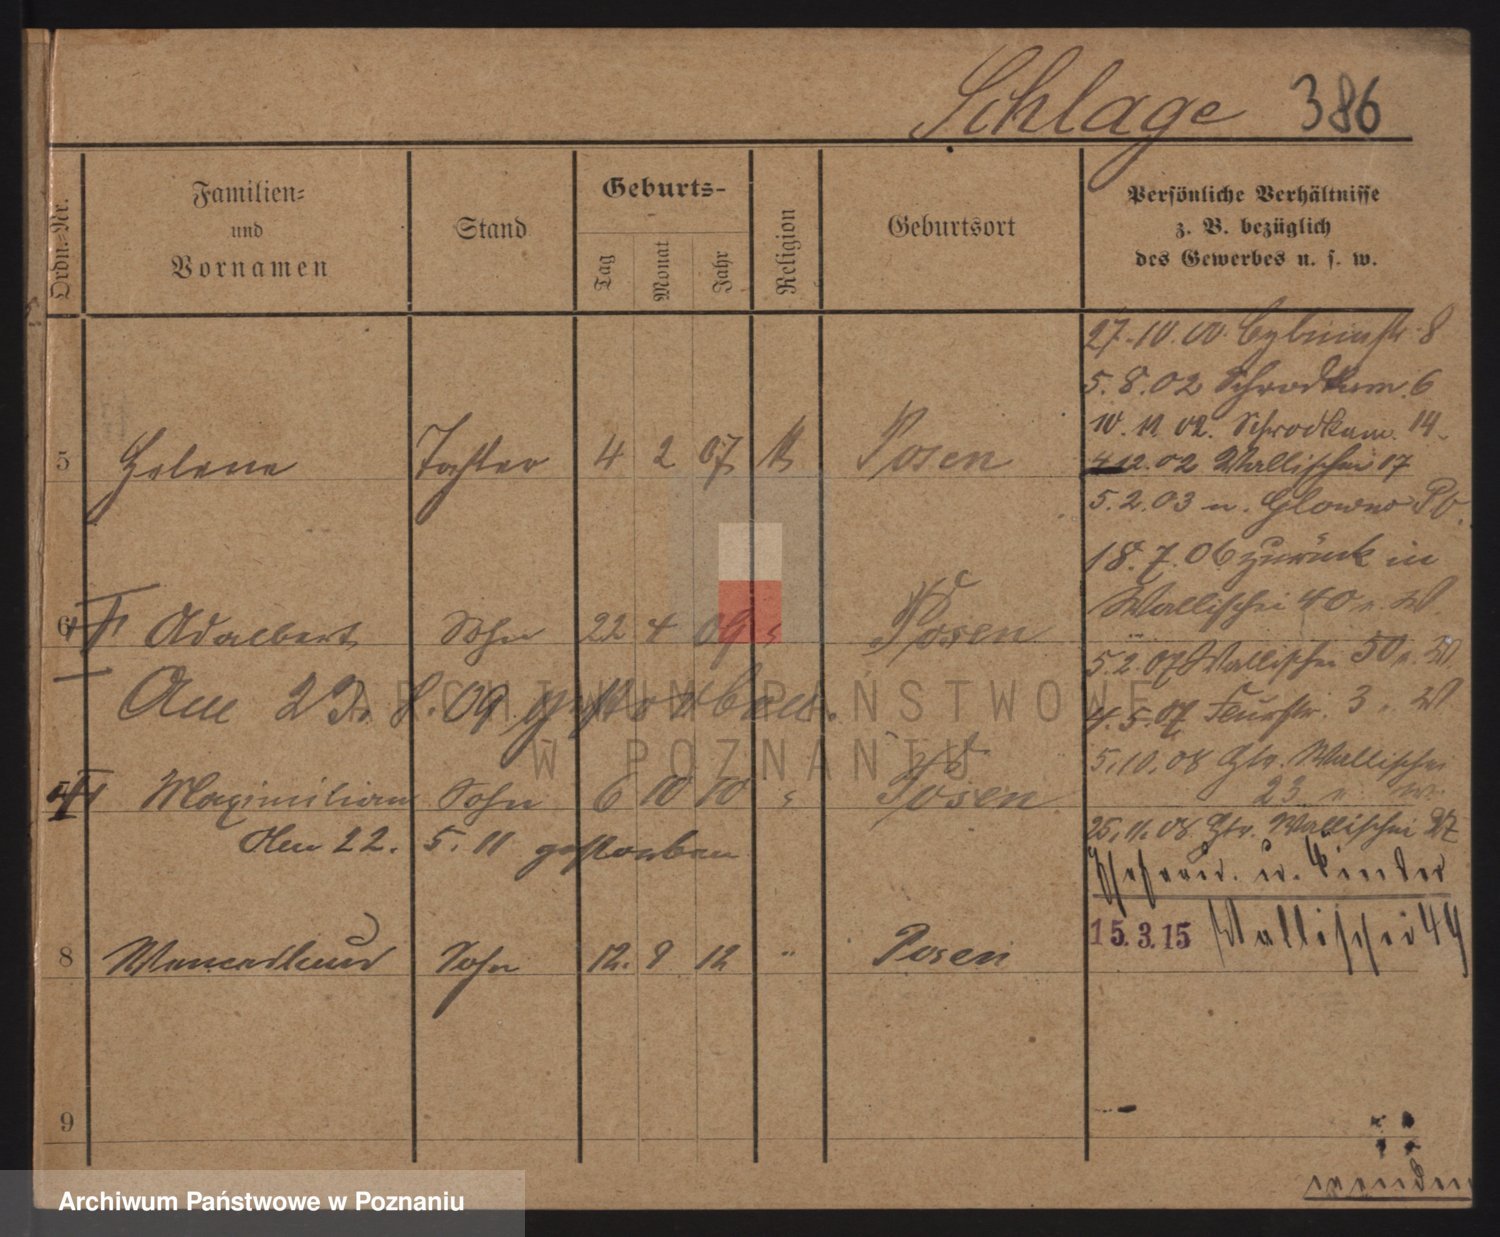 Schlage 386
Ordn.-Nr.
Familien-
und
Vornamen
Stand
Geburts-
Tag
Monat
Jahr
Religion
Geburtsort
Persönliche Verhältnisse
z. B. bezüglich
des Gewerbes u. s. w.
27.10.00. Cybinastr. 8
5.8.02 Schrodkam. 6
10.11.02. Schrodkam. 14.
4.12.02 Wallischei 17
5 Helene Tochter 4 2 07 Posen
5.2.03 n. Glowno
18.7.06 zurück in
Wallischei 40
6 Adalbert Sohn 22 4 09 Posen
5.2.07 Wallischei 50
Am 23. 8. 09 gestorben.
4.5.07 3
5.10.08 Wallischei
Maximilian Sohn 6 10 10 Posen
23
25.11.08 Wallischei 27
Am 22. 5. 11 gestorben
u. Kinder
15.3.15 Wallischei 44
8 Sohn 12. 9 12 " Posen
9
wenden
ARCHIWUM PAŃSTWOWE
W POZNANIU
Archiwum Państwowe w Poznaniu